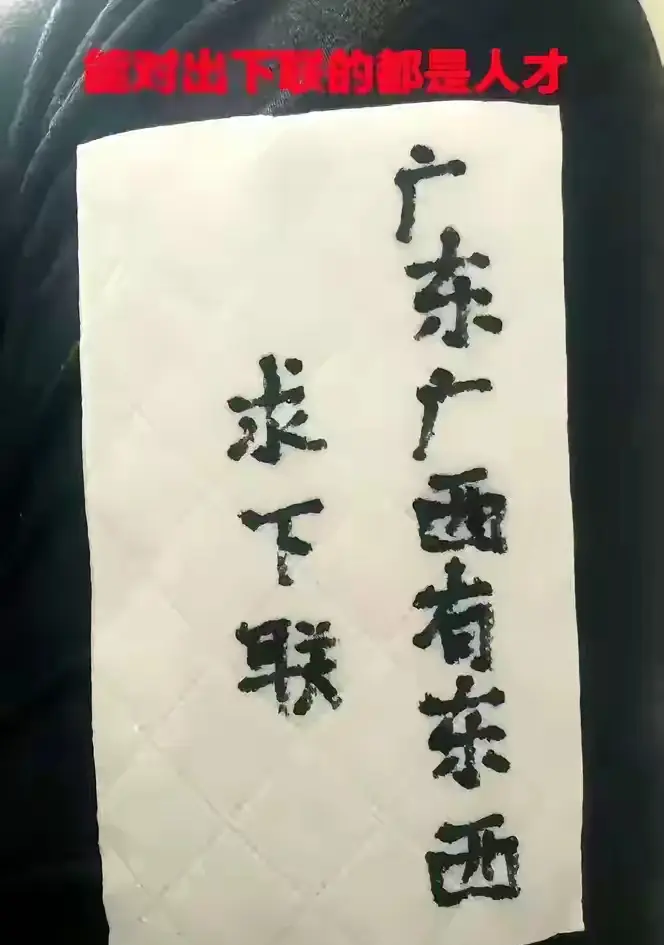 能对出下联的都是人才
广东广西有东西
求下联